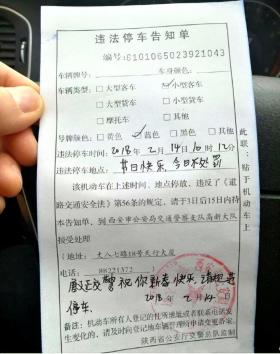 违法停车告知单
编号:6101065023921043
车辆牌号: 车身颜色:
车辆类型: □大型客车 小型客车
□大型货车 □小型货车
□摩托车 □其他
号牌颜色: □黄色 蓝色 □黑色 □其他
违法停车时间: 2018年2月14日10时12分
违法停车地点: 节日快乐,今日不处罚
该机动车在上述时间、地点停放,违反了《道
路交通安全法》第56条的规定。请于3日后15日内持
本告知单,到西安市公安局交通警察支队高新大队
接受处理
(地址: 大八七路18号天行大厦
电话: 88221372
交警祝你新春快乐,请规范
停车.
2018年2月14日
备注:机动车所有人登记的住所地址或者联系电话发
生变化的,请及时向登记地车辆管理所申请变更备案。
陕西省公安厅交警总队监制
此联:贴于机动车上